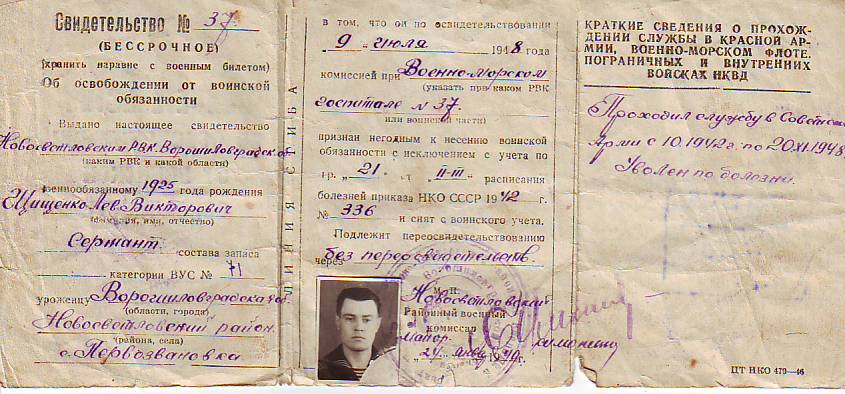 Свидетельство № 37
(БЕССРОЧНОЕ)
(хранить наравне с военным билетом)
Об освобождении от воинской
обязанности
Выдано настоящее свидетельство
Новосветловским РВК. Ворошиловградской
(каким РВК и какой области)
военнообязанному 1925 года рождения
Лев Викторович
(фамилия, имя, отчество)
Сержант состава запаса
категории ВУС №
уроженцу Ворошиловградская обл.
(области, города)
Новосветловский район
(района, села)
с. Первозвановка
ЛИНИЯ СГИБА
в том, что он по освидетельствовании
9 июля 1948 года
комиссией при Военно-морском
(указать при каком РВК
госпитале № 37.
или воинской части)
признан негодным к несению воинской
обязанности с исключением с учета по
гр. 21. ст II-III расписания
болезней приказа НКО СССР 1942 г.
№ 336 и снят с воинского учета.
Подлежит переосвидетельствованию
через без переосвидетельств.
М. П.
Новосветловский
Районный военный
комиссал
майор
КРАТКИЕ СВЕДЕНИЯ О ПРОХОЖ-
ДЕНИИ СЛУЖБЫ В КРАСНОЙ АР-
МИИ, ВОЕННО-МОРСКОМ ФЛОТЕ.
ПОГРАНИЧНЫХ И ВНУТРЕННИХ
ВОЙСКАХ НКВД
Проходил службу в Советской
Армии с 10.1942 г. по 20.XI.1948
Уволен по болезни.
ЦТ НКО 479—46